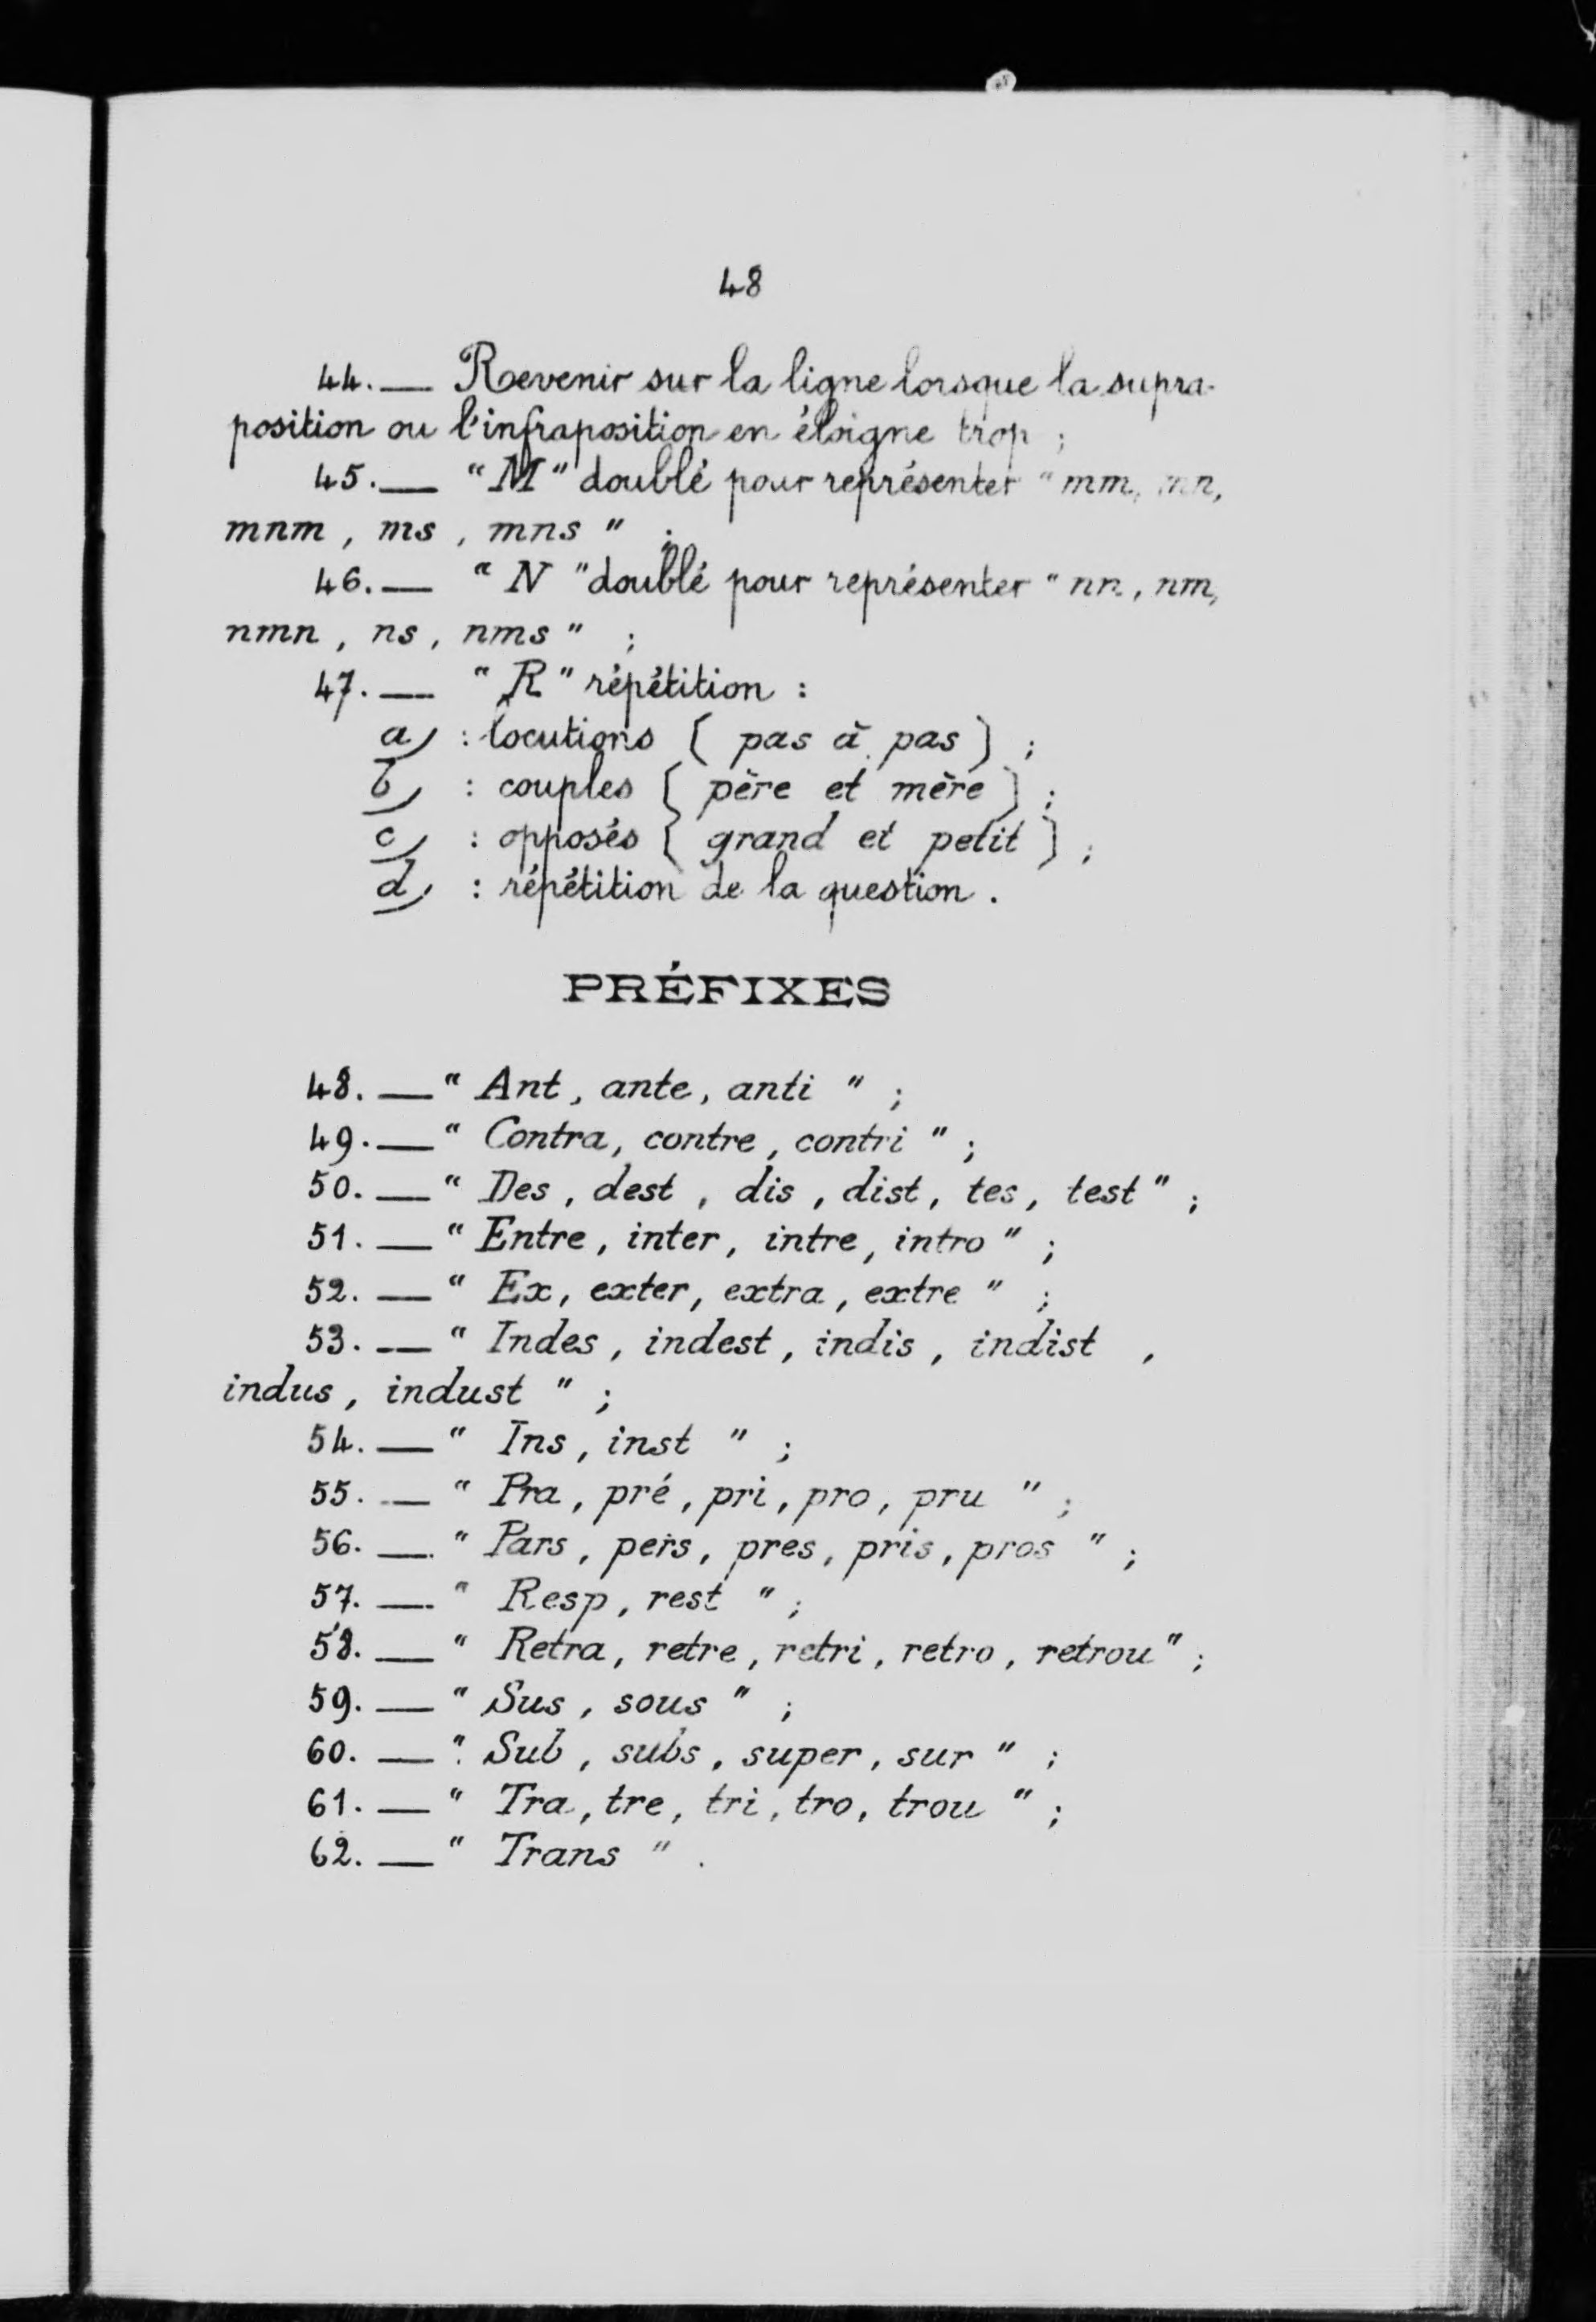 48
44. — Revenir sur la ligne lorsque la supra-
position ou l'infraposition en éloigne trop ;
45. — “ M ” doublé pour représenter “ mm, mn,
mnm , ms , mns ” ;
46. — “ N ” doublé pour représenter “ nn , nm,
nmn , ns , nms ” ;
47. — “ R ” répétition :
a) : locutions ( pas à pas ) ;
b) : couples ( père et mère ) ;
c) : opposés ( grand et petit ) ;
d) : répétition de la question .
PRÉFIXES
48. — “ Ant , ante , anti ” ;
49. — “ Contra , contre , contri ” ;
50. — “ Des , dest , dis , dist , tes , test ” ;
51. — “ Entre , inter , intre , intro ” ;
52. — “ Ex , exter , extra , extre ” ;
53. — “ Indes , indest , indis , indist ,
indus , indust ” ;
54. — “ Ins , inst ” ;
55. — “ Pra , pré , pri , pro , pru ” ;
56. — “ Pars , pers , pres , pris , pros ” ;
57. — “ Resp , rest ” ;
58. — “ Retra , retre , retri , retro , retrou ” ;
59. — “ Sus , sous ” ;
60. — “ Sub , subs , super , sur ” ;
61. — “ Tra , tre , tri , tro , trou ” ;
62. — “ Trans ” .